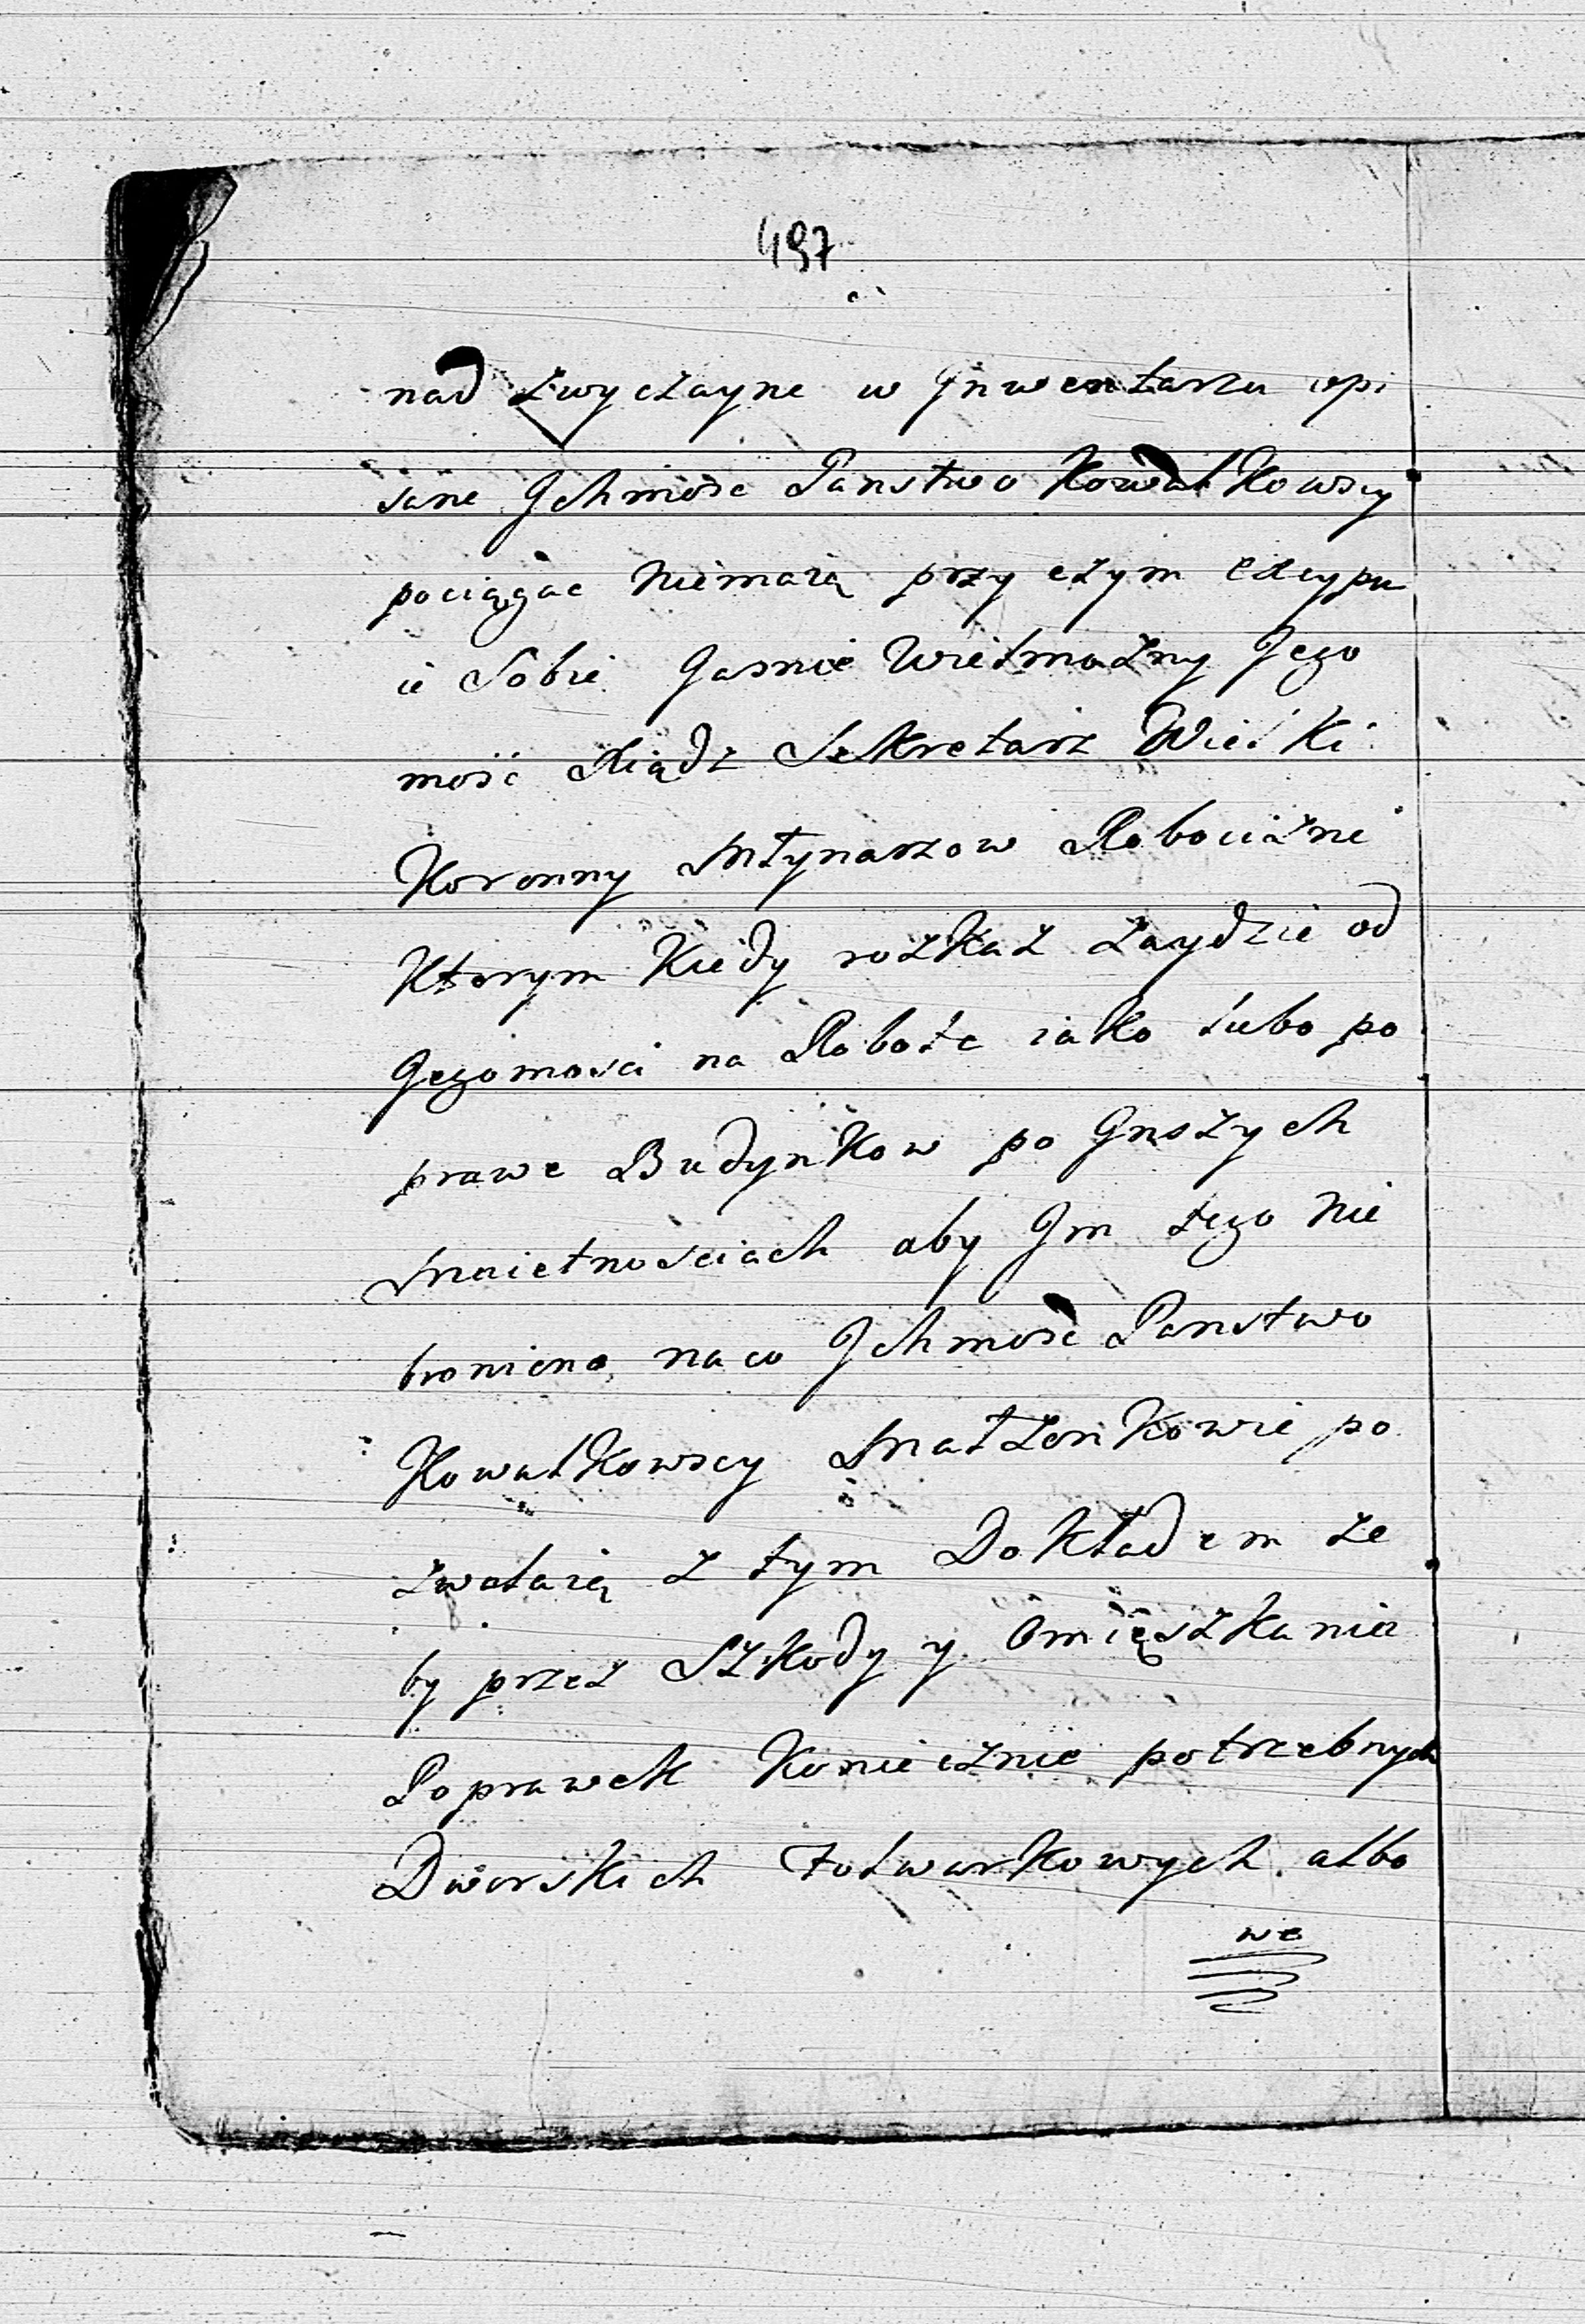 497
nad zwyczayne w Jnwentarzu opi
sane Jchmość Panstwo Kowalkowscy
pociągać niemaią przy czym excypu
ie Sobie Jasnie Wielmożny Jego
mość Xiądz Sekretarz Wielki
Koronny Młynarzow Robocizne
Ktorym Kiedy rozkaz zaydzie od
Jegomosci na Robote iako lubo po
prawe Budynkow po Jnszych
Maietnosciach aby Jm tego nie
broniono, na co Jchmość Panstwo
Kowalkowscy Małżonkowie po
zwalaią z tym Dokładem ze
by przez Szkody y Omięszkania
Poprawek Koniecznie potrzebnych
Dworskich Folwarkowych albo
we